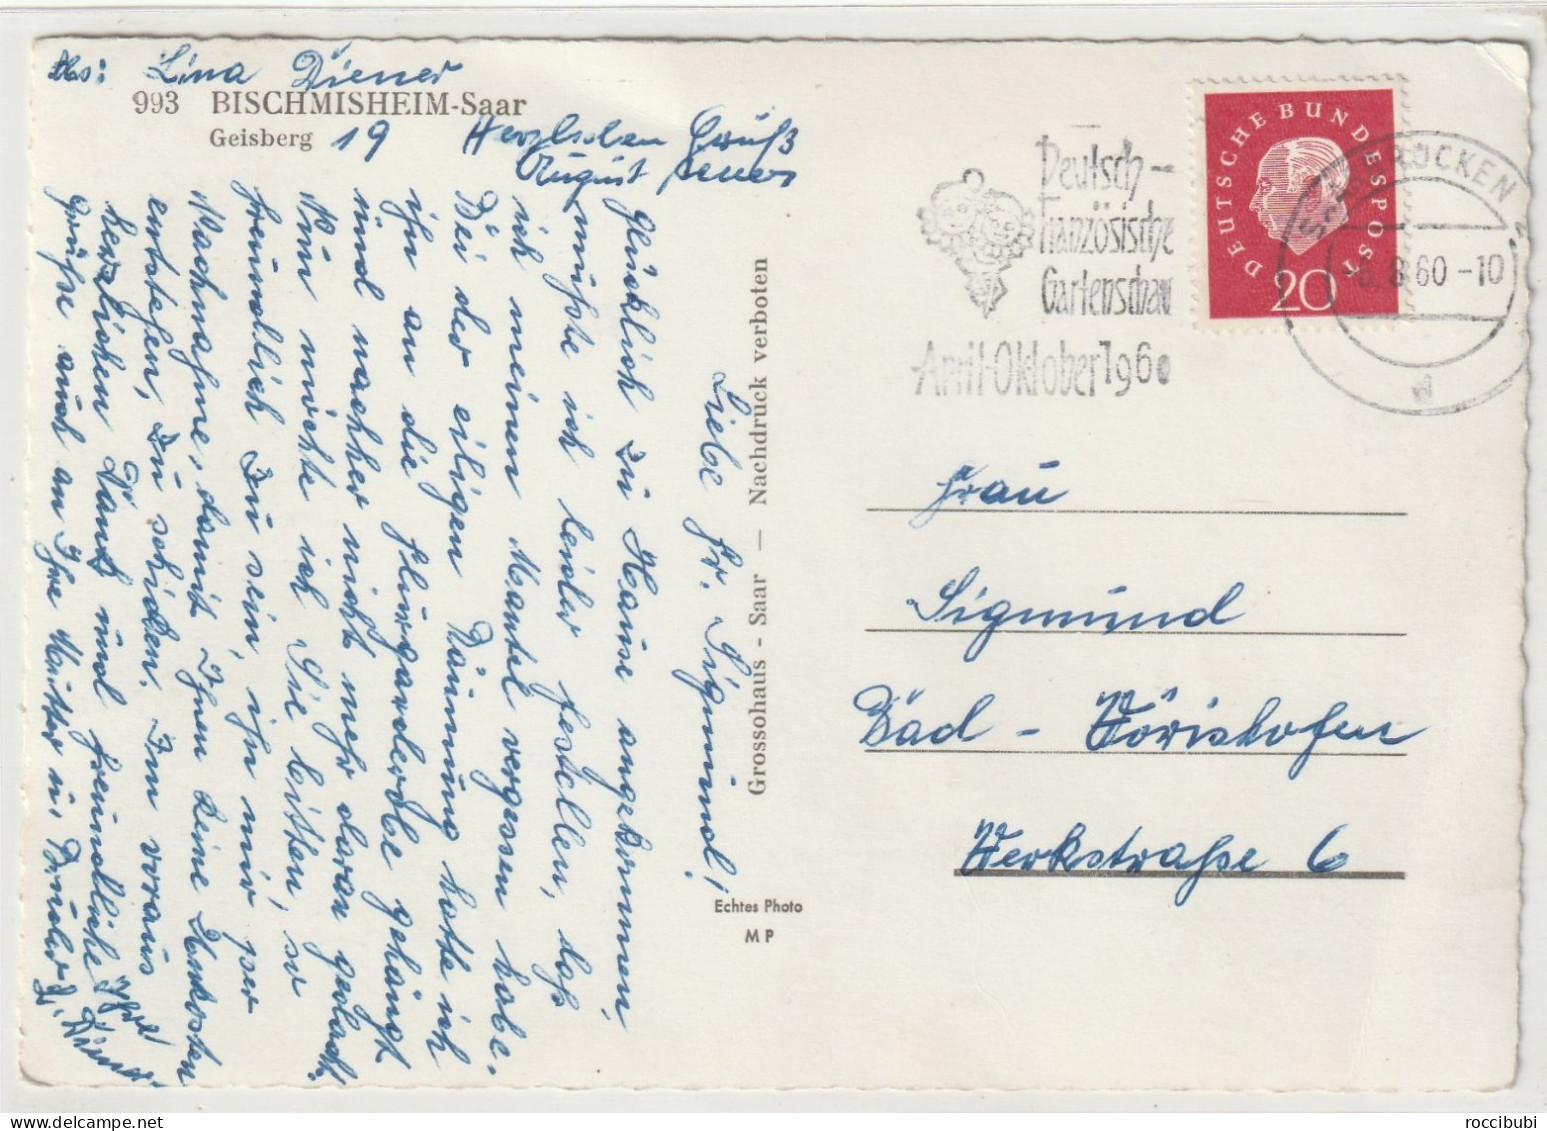 Abs: Lina Diener
993 BISCHMISHEIM-Saar
Geisberg 19
Herzlichen Gruß
August Diener
Liebe Fr. Sigmund!
Glücklich zu Hause angekommen,
mußte ich leider festellen, daß
ich meinen Mantel vergessen habe.
Bei der eiligen Räumung hatte ich
ihn an die Flurgarderobe gehängt
und nachher nicht mehr daran gedacht.
Nun möchte ich Sie bitten, so
freundlich zu sein, ihn mir per
Nachnahme, damit Ihnen keine Unkosten
entstehen, zu schicken. Im voraus
herzlichen Dank und freundliche
Grüße auch an Ihre Mutter u. Bruder
Ihre
L. Diener
Grossohaus - Saar — Nachdruck verboten
Echtes Photo
M P
Deutsch-
Französische
Gartenschau
April-Oktober 1960
DEUTSCHE BUNDESPOST
20
SAARBRÜCKEN 2
8.60 -10
d
Frau
Sigmund
Bad - Wörishofen
Werkstraße 6
roccibubi